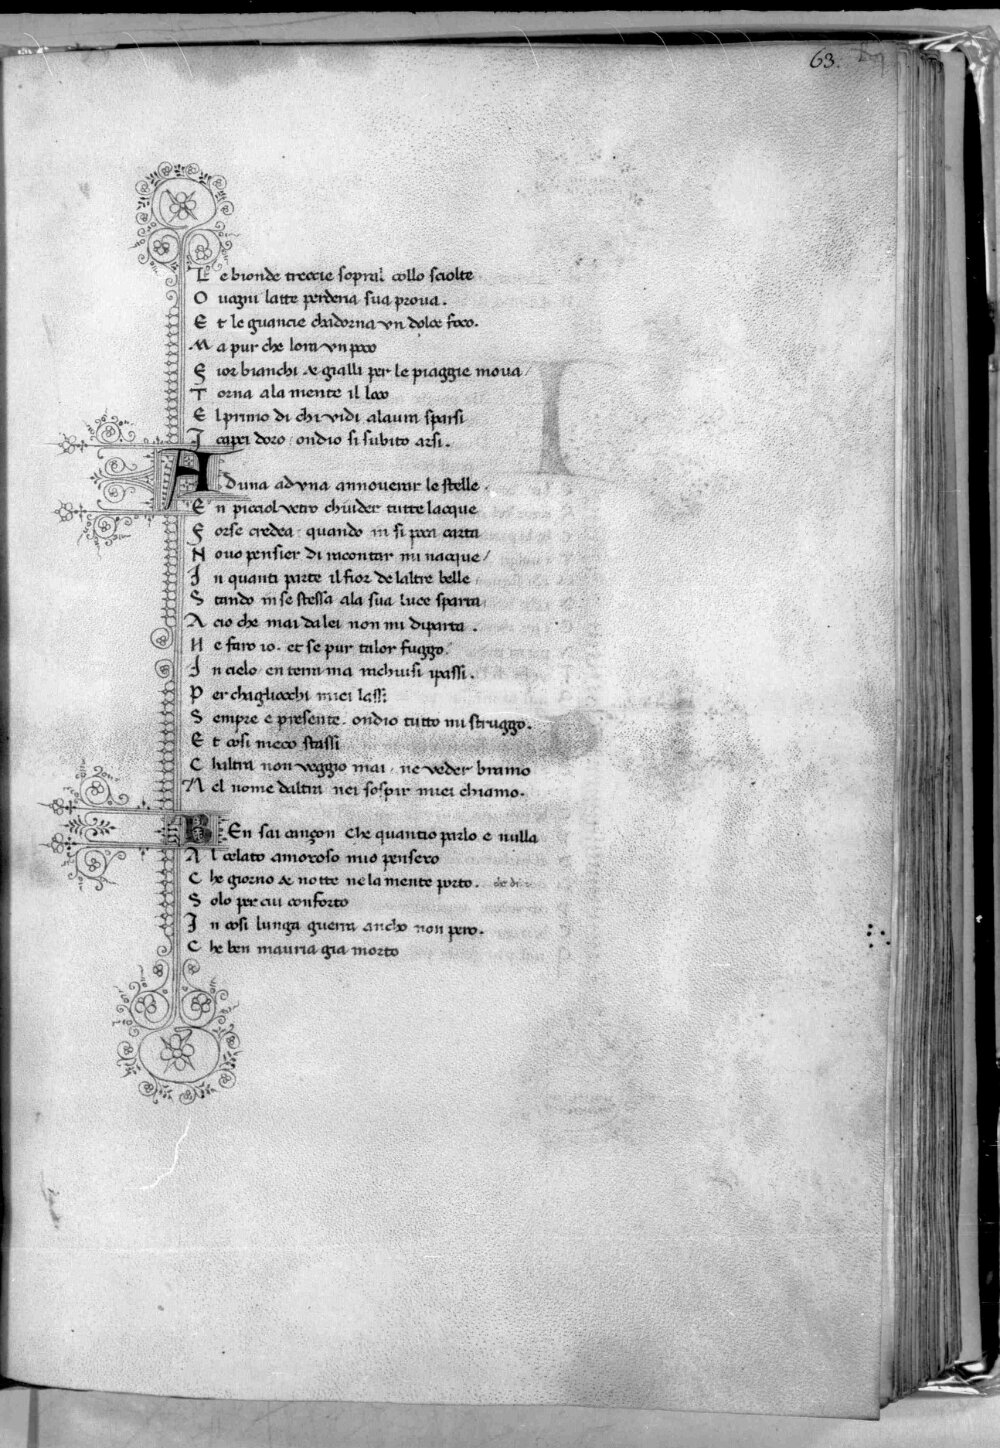 63.
Le bionde treccie sopral collo sciolte
Ouagni latte perderia sua proua.
Et le guancie chadorna vn dolce foco.
Ma pur che lora vn poco
Fior bianchi & gialli per le piaggie moua/
Torna ala mente il loco
El primo di chi vidi alaura sparsi
I capei doro . ondio si subito arsi.
Aduna aduna annouerar le stelle .
En picciol vetro chiuder tutte lacque
Forse credea . quando in si poca carta
Nouo pensier di racontar mi nacque/
In quanti parte il fior de laltre belle
Stando in se stessa ala sua luce sparta
Acio che mai da lei non mi diparta .
Ne faro io . et se pur talor fuggo.
In cielo . en terra ma rachiusi ipassi.
Per chagliocchi miei lassi
Sempre e presente . ondio tutto mi struggo.
Et cosi meco stassi
Chaltra non veggio mai . ne veder bramo
Nel nome daltra nei sospir miei chiamo.
BEn sai cançon che quantio parlo e nulla
Al celato amoroso mio pensero
Che giorno & notte ne la mente porto.
Solo per cui conforto
In cosi lunga guerra ancho non pero.
Che ben mauria gia morto